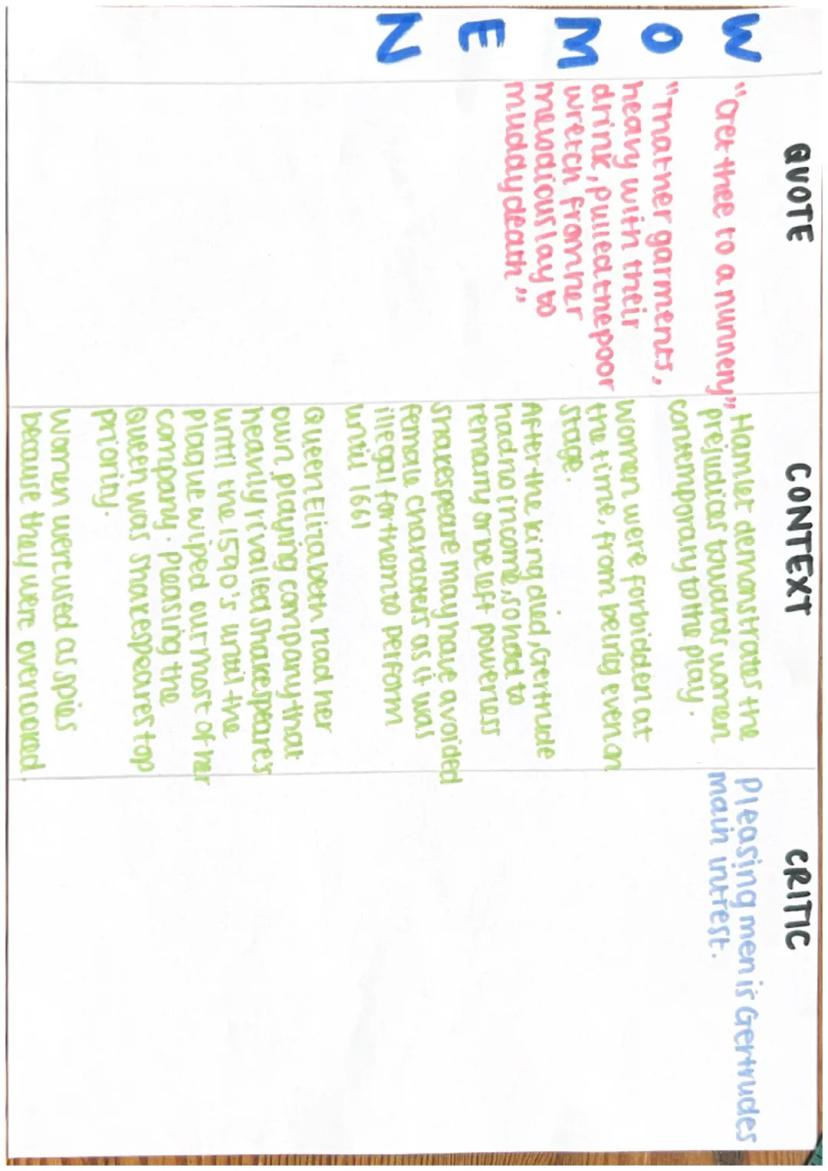 WOMEN
QUOTE
"Get thee to a nunnery"
"That her garments,
heavy with their
drink, pulled the poor
wretch from her
melodious lay to
muddy death"
CONTEXT
Hamlet demonstrates the
prejudices towards women
contemporary to the play.
Women were forbidden at
the time, from being even on
stage.
After the king died, Gertrude
had no income, so had to
remarry or be left powerless
Shakespeare may have avoided
female characters as it was
illegal for them to perform
until 1661
Queen Elizabeth had her
own playing company that
heavily rivalled Shakespeare's
until the 1590's until the
plague wiped out most of her
company. Pleasing the
Queen was Shakespeares top
priority.
Women were used as spies
because they were overlooked.
CRITIC
Pleasing men is Gertrudes
main intrest.